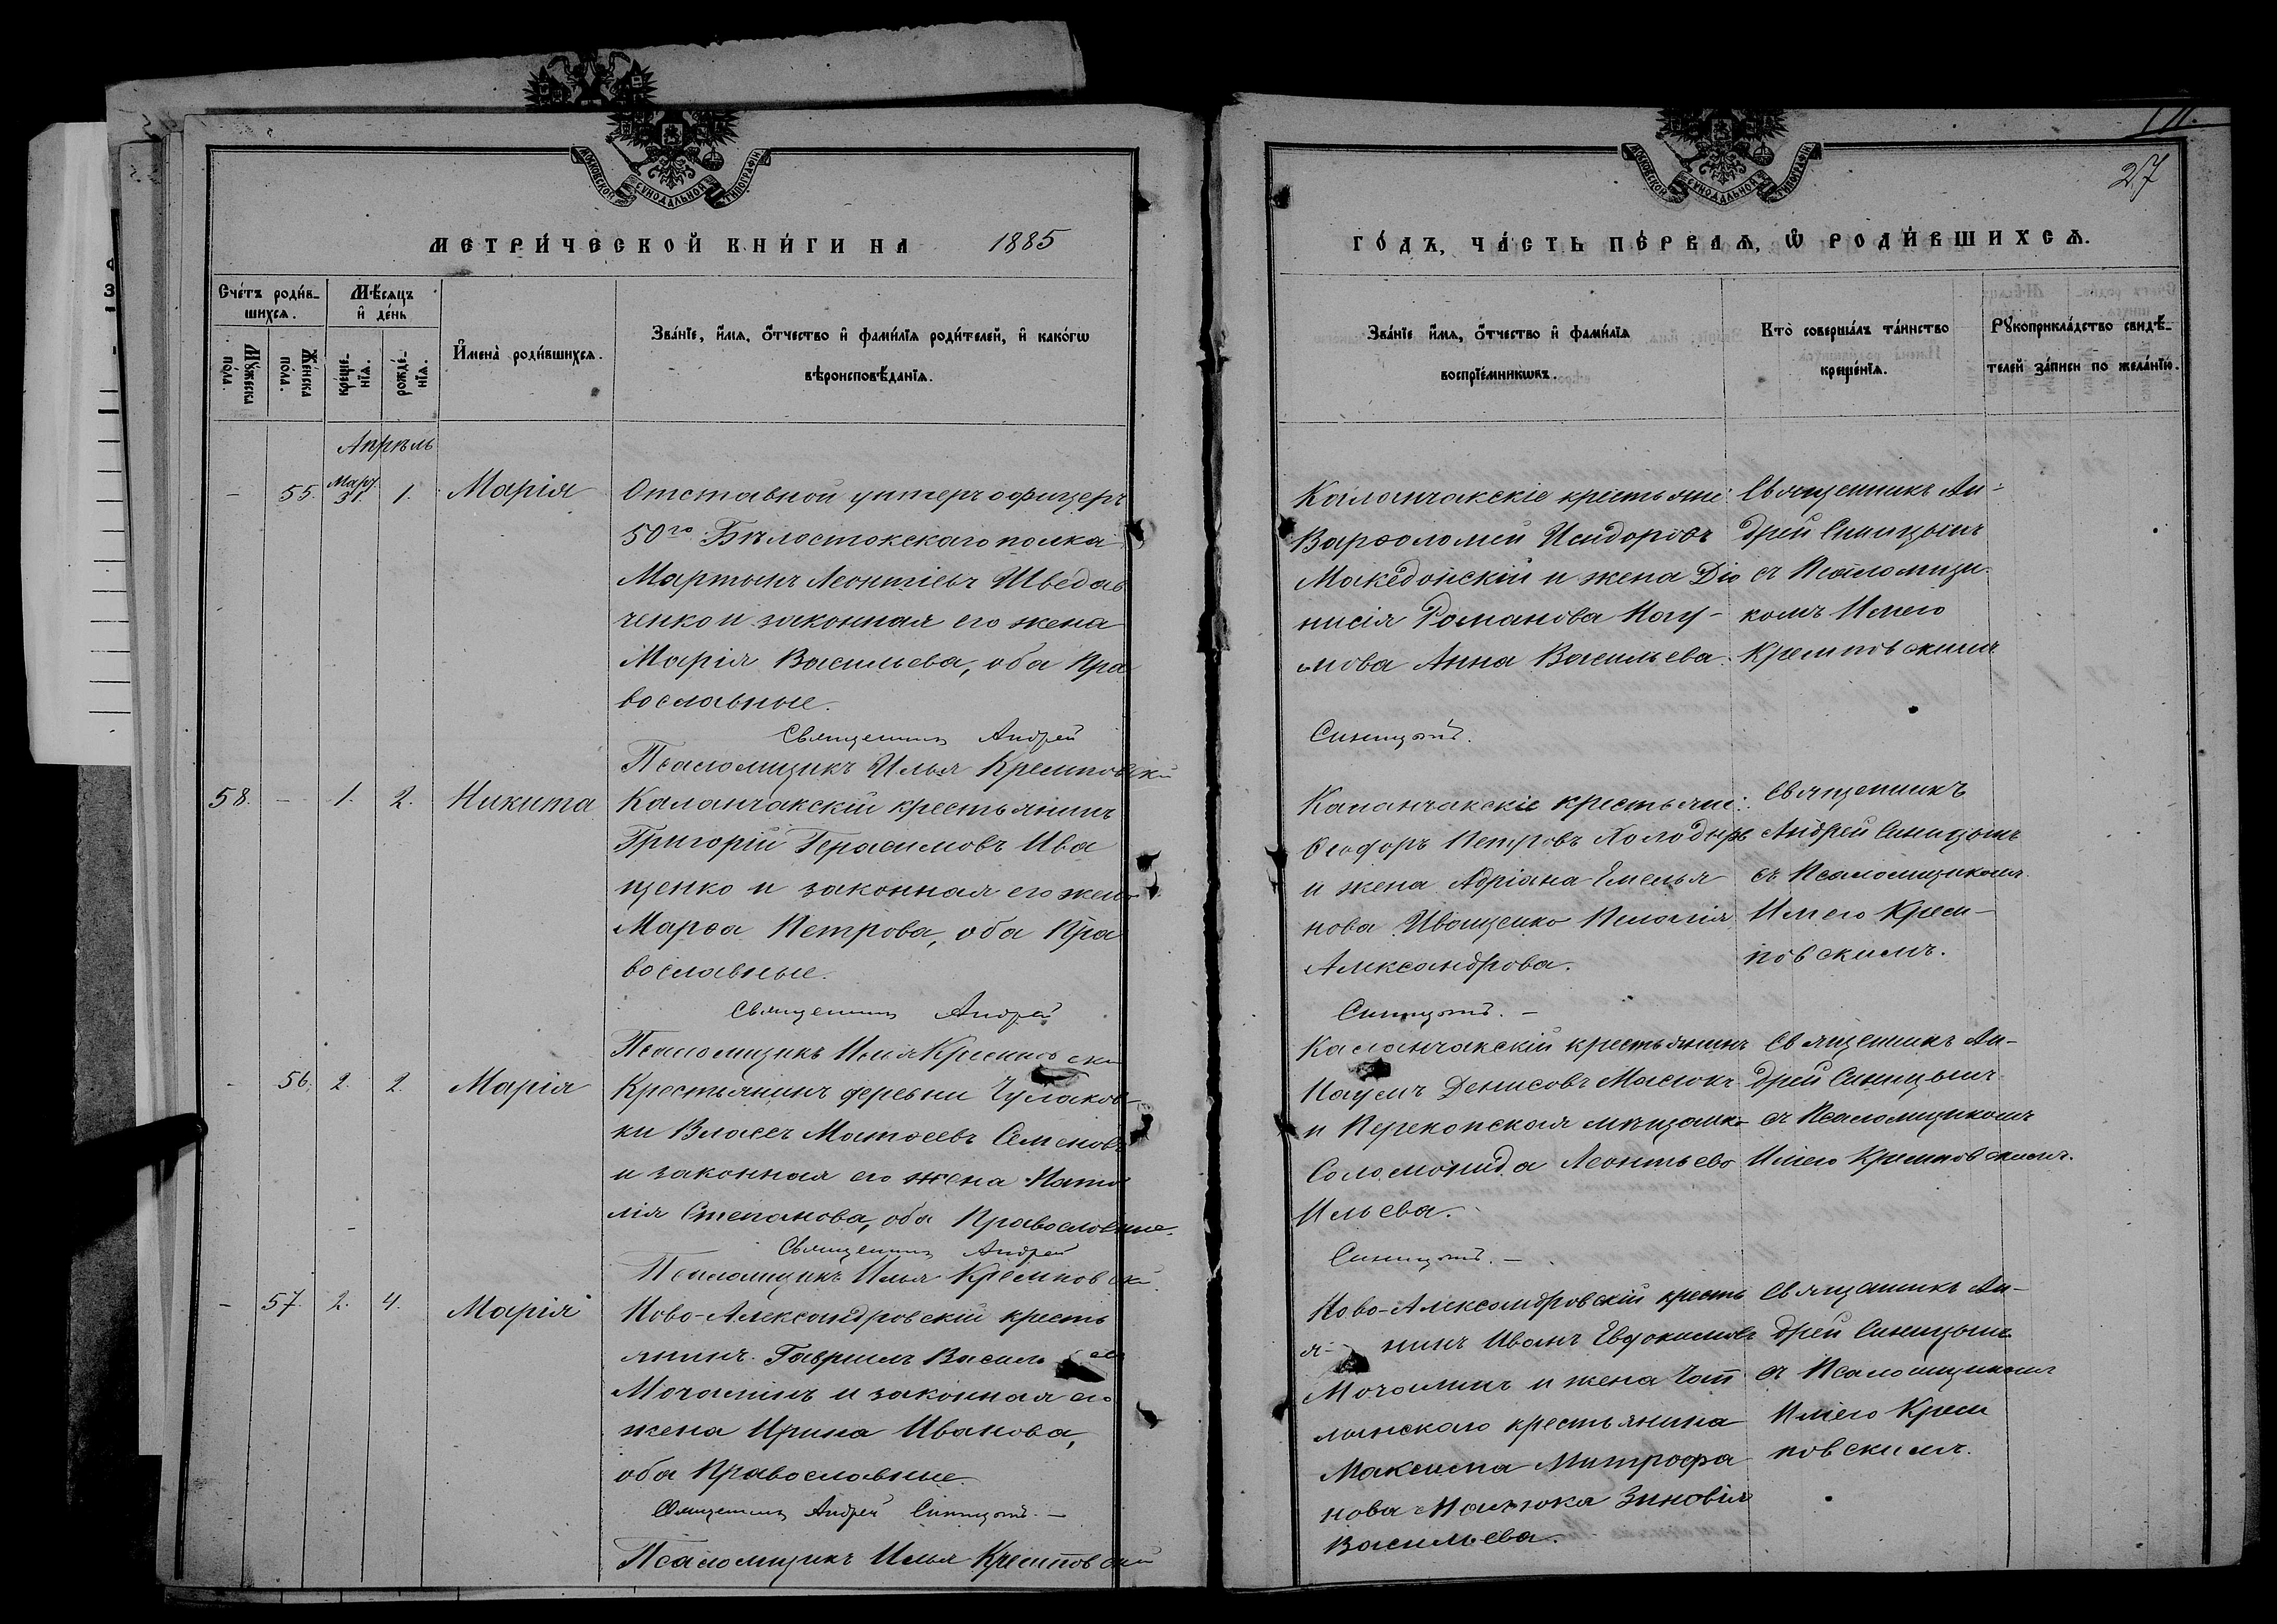 МОСКОВСКОЙ СѴНОДАЛЬНОЙ ТИПОГРАФІИ
МЕТРИ́ЧЕСКОЙ КНИ́ГИ НА 1885
Сче́тъ роди́в-
шихсѧ.
Мѣ́сѧцъ
и҆ де́нь
И҆мена̀ роди́вшихсѧ.
Зва́нїе, и҆́мѧ, ѻ҆́тчество и҆ фами́лїѧ роди́телей, и҆ како́гѡ
вѣроисповѣ́данїѧ.
Мꙋ́жеска
по́ла.
Же́нска
по́ла.
креще́-
нїѧ.
рожде́-
нїѧ.
Апрѣль
- 55. Март 31. 1. Марія
Отставной унтеръ офицеръ
50го Бѣлостокскаго полка
Мартынъ Леонтіевъ Шведав
ченко и законная его жена
Марія Васильева, оба Пра
вославные.
Священникъ Андрей
Псаломщикъ Илья Кремповскій
58. - 1. 2. Никита
Каланчакскій крестьянинъ
Григорій Герасимовъ Ива
щенко и законная его жена
Марѳа Петрова, оба Пра
вославные.
Священникъ Андрей
Псаломщикъ Илья Кремповскій
- 56. 2. 2. Марія
Крестьянинъ деревни Чулаков-
ки Власъ Матѳеевъ Семеновъ
и законная его жена Ната
лія Степанова, оба Православные.
Священникъ Андрей
Псаломщикъ Илья Кремповскій
- 57. 2. 4. Марія
Ново-Александровскій кресть
янинъ Гавриилъ Василь евъ
Мочалинъ и законная его
жена Ирина Иванова,
оба Православные
Священникъ Андрей Синицынъ. -
Псаломщикъ Илья Кремповскій
27
МОСКОВСКОЙ СѴНОДАЛЬНОЙ ТИПОГРАФІИ
ГО́ДЪ, ЧА́СТЬ ПЕ́РВАѦ, Ѡ҆ РОДИ́ВШИХСѦ.
Зва́нїе и҆́мѧ, ѻ҆́тчество и҆ фами́лїѧ
воспрїе́мникѡвъ.
Кто̀ соверша́лъ та́инство
креще́нїѧ.
Рꙋкоприкла́дство свидѣ́-
телей за́писи по жела́нїю.
Каланчакскіе крестьяне:
Варѳоломей Исидоровъ
Македонскій и жена Діо
нисія Романова Нау-
мова Анна Васильева.
Священникъ Ан-
дрей Синицынъ
съ Псаломщи-
комъ Ильею
Кремповскимъ
Синицынъ.
Каланчакскіе крестьяне:
Ѳеодоръ Петровъ
и жена Адріана Емелья
нова Иващенко Пелагія
Александрова.
Священникъ
Андрей Синицынъ
съ Псаломщикомъ
Ильею Крем-
повскимъ.
Синицынъ. -
Каланчакскій крестьянинъ
Наумъ Денисовъ Масюкъ
и Перекопская мѣщанка
Соломонида Леонтьева
Ильева.
Священникъ Ан-
дрей Синицынъ
съ Псаломщикомъ
Ильею Кремповскимъ.
Синицынъ. -
Ново-Александровскій кресть
я- нинъ Иванъ Евдокимовъ
Мочалинъ и жена Чап
лынскаго крестьянина
Максима Митрофа
нова Зиновія
Васильева.
Священникъ Ан-
дрей Синицынъ
съ Псаломщикомъ
Ильею Крем
повскимъ.